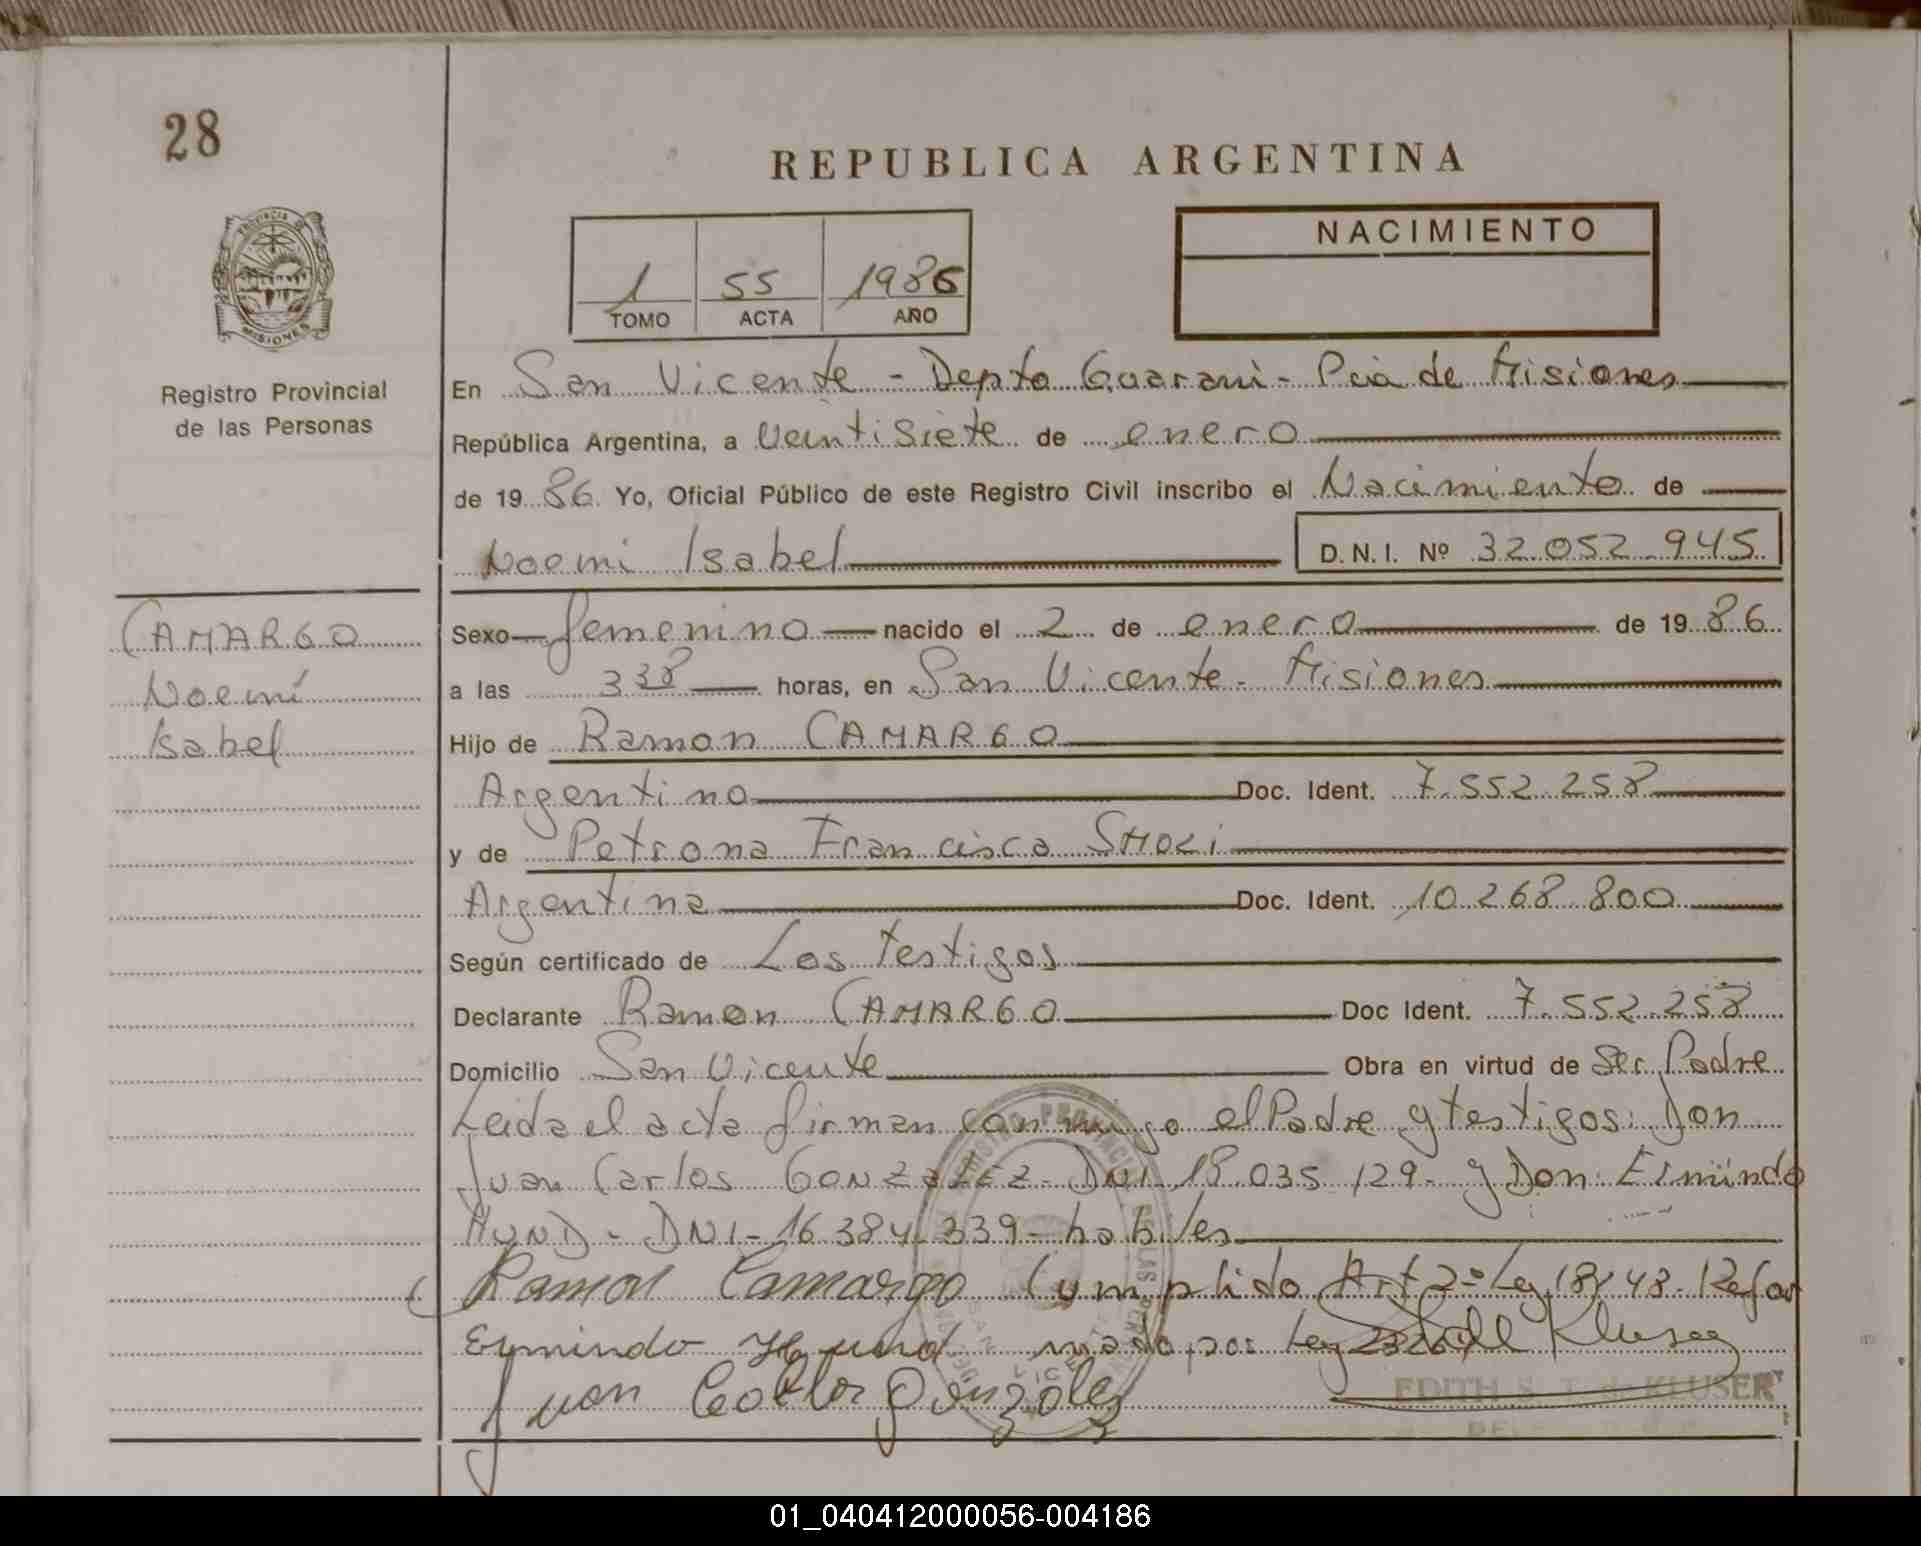 28
REPUBLICA ARGENTINA
PROVINCIA DE
MISIONES
Registro Provincial
de las Personas
1 55 1986
TOMO ACTA AÑO
NACIMIENTO
En San Vicente - Depto Guarani - Pcia de Misiones
República Argentina, a veintisiete de enero
de 19 86. Yo, Oficial Público de este Registro Civil inscribo el Nacimiento de
Noemi Isabel D.N.I. Nº 32.052.945
CAMARGO
Noemí
Isabel
Sexo femenino nacido el 2 de enero de 19 86
a las 3 38 horas, en San Vicente - Misiones
Hijo de Ramon CAMARGO
Argentino Doc. Ident. 7.552.258
y de Petrona Francisca
Argentina Doc. Ident. 10.268.800
Según certificado de Los Testigos
Declarante Ramon CAMARGO Doc Ident. 7.552.258
Domicilio San Vicente Obra en virtud de Ser Padre
Leida el acta firman conmigo el Padre y testigos: Don
Juan Carlos GONZALEZ - DNI 18.035.129 - y Don Ermindo
HUND - DNI - 16.384.339 - habiles
Ramon Camargo Cumplido Art 2º Ley 18
Ermindo Hund mado por Ley
Juan Carlos Gonzalez
EDITH S. T. de KLUSER
REGISTRO PROVINCIAL DE LAS PERSONAS
SAN VICENTE
01_040412000056-004186